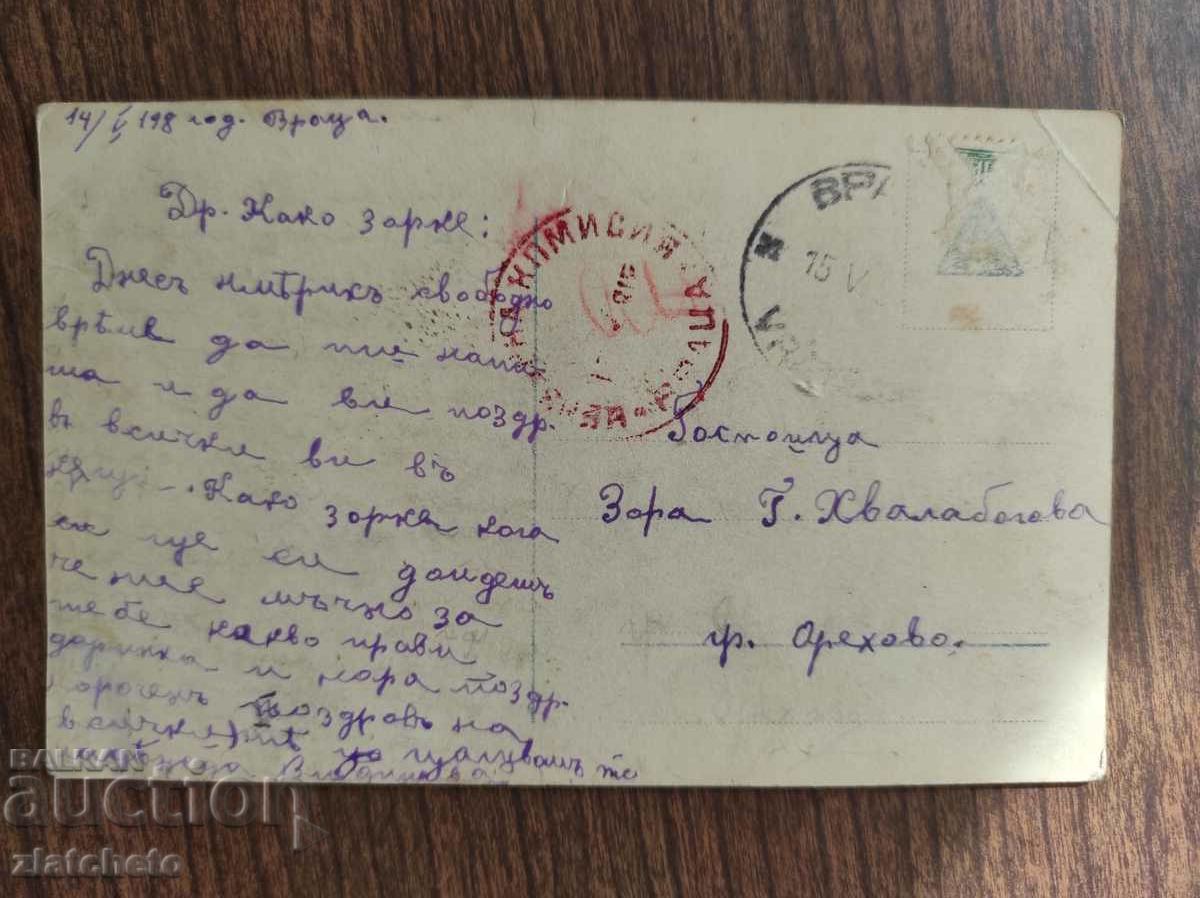 14/V 198 год. Враца.
Др. Како Зорке:
Днесъ намѣрихъ свободно
врѣме да ти напи-
ша и да ви поздр.
въ всички ви въ
Како Зорке кога
си ще си дойдешъ
че ние мъчно за
тебе какво прави
даринка и нора поздр.
поздравъ на
всички
цалувамъ те
КОМИСИЯ ВРАЦА
ВРА
15 V
VR
Госпоица
Зора Г. Хвалабогова
гр. Орехово.
BALKAN
auction
zlatcheto